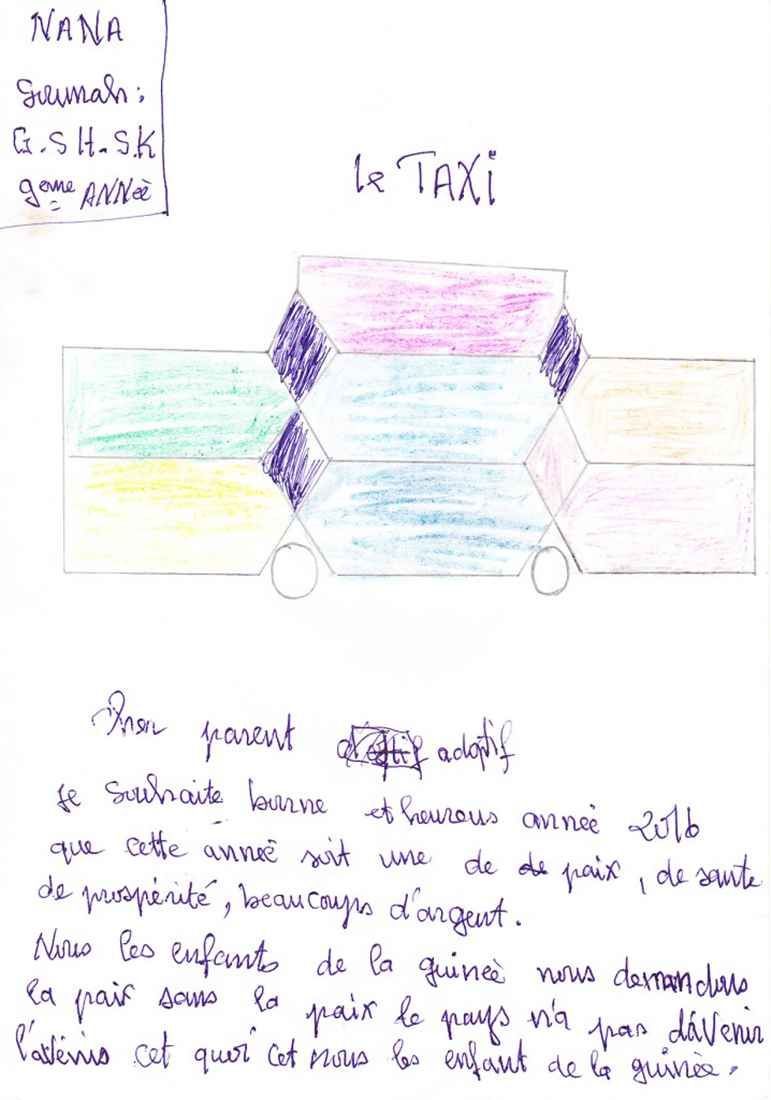 NANA
Soumah :
G.S H.S.K
9eme ANNéè
le TAXi
Mon parent adoptif
Je souhaite bonne et heureus anneè 2016
que cette anneè soit une de de paix, de sante
de prospérité, beaucoups d'argent.
Nous les enfants de la guineè nous demandons
la paix sans la paix le pays n'a pas dávenir
l'avenis cet quoi cet nous les enfant de la guinèe.